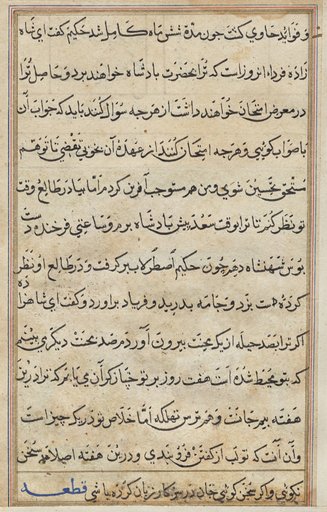 و فوائد حاوی گشت چون مدّة شش ماه کامل شد حکیم گفت ای شاه
زاده فردا روز است که ترا بحضرت پادشاه خواهند برد و حاصل ترا
در معرض امتحان خواهند داشت از هرچه سوال کنند باید که جواب آن
با صواب گویی و هرچه امتحان کنند از عهدۀ آن بخوبی تقصی نمایی تا هم
مستحق تحسین شوی و من هم مستوجب آفرین گردم اما بیا در طالع وقت
تو نظر کنم تا ترا بوقت سعد پیش پادشاه برم و بساعتی فرخنده دست
بوس شهنشاه دهم چون حکیم اصطرلاب برگرفت و در طالع او نظر
کرد دست بزد و جامه بدرید و فریاد برآورد و گفت ای شاهزاده
اگر ترا بصد حیله از یک محنت بیرون آورد مرصد محنت دیگر می بینم
که بتو محیط شده است هفت روز بر تو چنان گران می یابم که ترا درین
هفته بیم جانست و هم ترس تهلکه اما خلاص تو در یک چیز است
و آن آنست که تو لب از گفتن فرو بندی و درین هفته اصلا هیچ سخن
نگویی و اگر سخن گویی جان در سر کار زبان کرده باشی قطعه